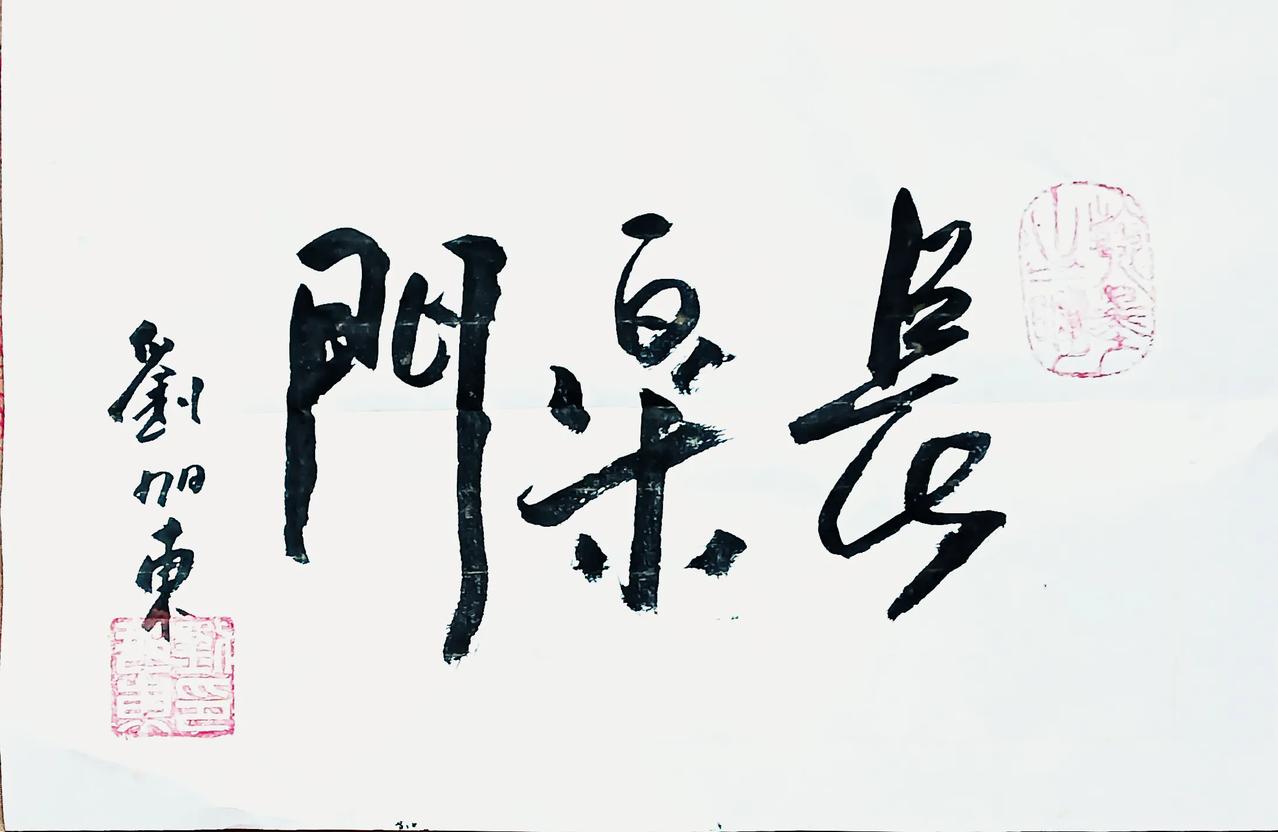 長樂門
劉旭東